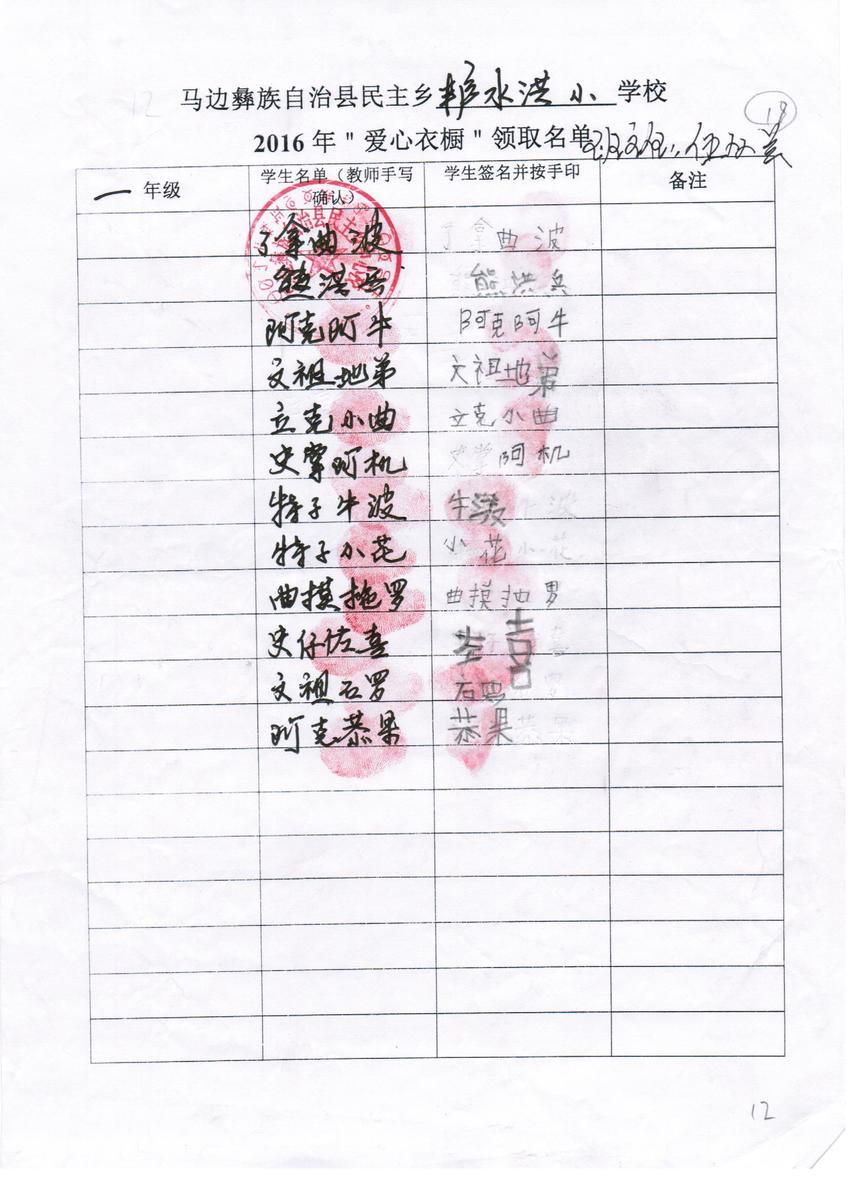 马边彝族自治县民主乡 水洪小 学校
18
2016 年 " 爱心衣橱 " 领取名单
一 年级 学生名单（教师手写确认） 学生签名并按手印 备注
了拿曲波 了拿曲波
熊洪兵 熊洪兵
阿克阿牛 阿克阿牛
文祖地弟 文祖地弟
立克小曲 立克小曲
史掌阿机 史掌阿机
特子牛波 牛波
特子小花 小花小花
曲摸拖罗 曲摸拖罗
史仔佐喜 喜
文祖石罗 石
阿克恭果 恭果
12